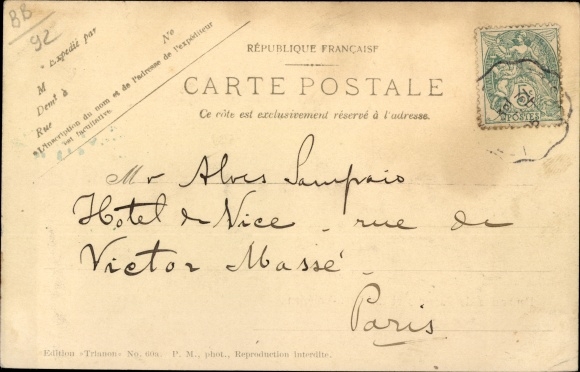 BB
92
* Expédié par
No
M
Demt à
Rue
*L'inscription du nom et de l'adresse de l'expéditeur
est facultative.
RÉPUBLIQUE FRANÇAISE
CARTE POSTALE
Ce côté est exclusivement réservé à l'adresse.
5
POSTES
Mr Alves Sampaio
Hotel de Nice - rue de
Victor Massé -
Paris
Edition «Trianon» No. 60a. P. M., phot., Reproduction interdite.